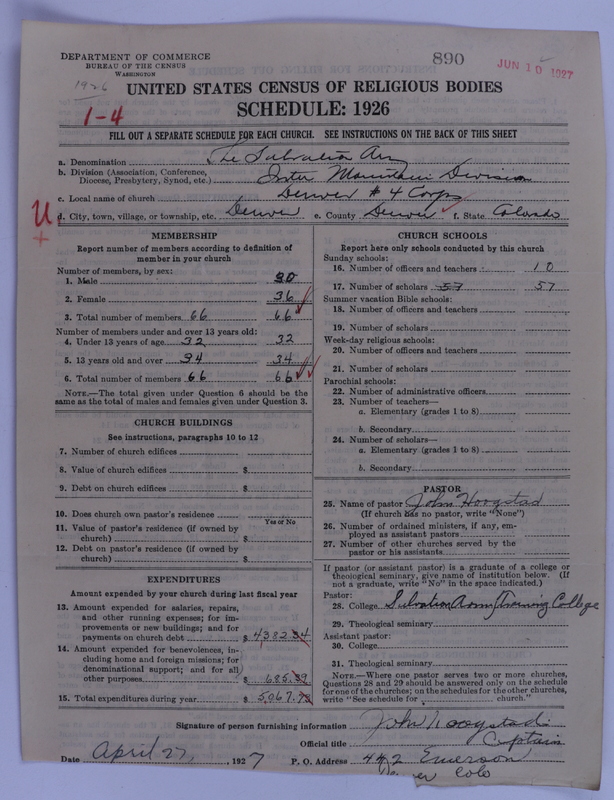 DEPARTMENT OF COMMERCE
BUREAU OF THE CENSUS
WASHINGTON
890
JUN 10 1927
1926
UNITED STATES CENSUS OF RELIGIOUS BODIES
1-4
SCHEDULE: 1926
FILL OUT A SEPARATE SCHEDULE FOR EACH CHURCH. SEE INSTRUCTIONS ON THE BACK OF THIS SHEET
a. Denomination The Salvation Army
b. Division (Association, Conference, Diocese, Presbytery, Synod, etc.) Inter Mountain Division
c. Local name of church Denver #4 Corps
U d. City, town, village, or township, etc. Denver e. County Denver f. State Colorado
MEMBERSHIP
Report number of members according to definition of
member in your church
Number of members, by sex:
1. Male 30
2. Female 36
3. Total number of members 66 66
Number of members under and over 13 years old:
4. Under 13 years of age 32 32
5. 13 years old and over 34 34
6. Total number of members 66 66
NOTE.—The total given under Question 6 should be
same as the total of males and females given under Question 3.
CHURCH BUILDINGS
See instructions, paragraphs 10 to 12
7. Number of church edifices
8. Value of church edifices $
9. Debt on church edifices $
10. Does church own pastor's residence
Yes or No
11. Value of pastor's residence (if owned by
church) $
12. Debt on pastor's residence (if owned by
church) $
EXPENDITURES
Amount expended by your church during last fiscal year
13. Amount expended for salaries, repairs,
and other running expenses; for im-
provements or new buildings; and for
payments on church debt $ 4382.34
14. Amount expended for benevolences, in-
cluding home and foreign missions; for
denominational support; and for all
other purposes $ 685.39
15. Total expenditures during year $ 5067.73
CHURCH SCHOOLS
Report here only schools conducted by this church
Sunday schools:
16. Number of officers and teachers 10
17. Number of scholars 57 57
Summer vacation Bible schools:
18. Number of officers and teachers
19. Number of scholars
Week-day religious schools:
20. Number of officers and teachers
21. Number of scholars
Parochial schools:
22. Number of administrative officers
23. Number of teachers—
a. Elementary (grades 1 to 8)
b. Secondary
24. Number of scholars—
a. Elementary (grades 1 to 8)
b. Secondary
PASTOR
25. Name of pastor John Hoogstad
(If church has no pastor, write "None")
26. Number of ordained ministers, if any, em-
ployed as assistant pastors
27. Number of other churches served by the
pastor or his assistants
If pastor (or assistant pastor) is a graduate of a college or
theological seminary, give name of institution below. (If
not a graduate, write "No" in the space indicated.)
Pastor:
28. College Salvation Army Training College
29. Theological seminary
Assistant pastor:
30. College
31. Theological seminary
NOTE.—Where one pastor serves two or more churches,
Questions 28 and 29 should be answered only on the schedule
for one of the churches; on the schedules for the other churches,
write "See schedule for church."
Signature of person furnishing information John Hoogstad
Official title Captain
Date April 27, 1927 P. O. Address 442 Emerson
Denver Colo